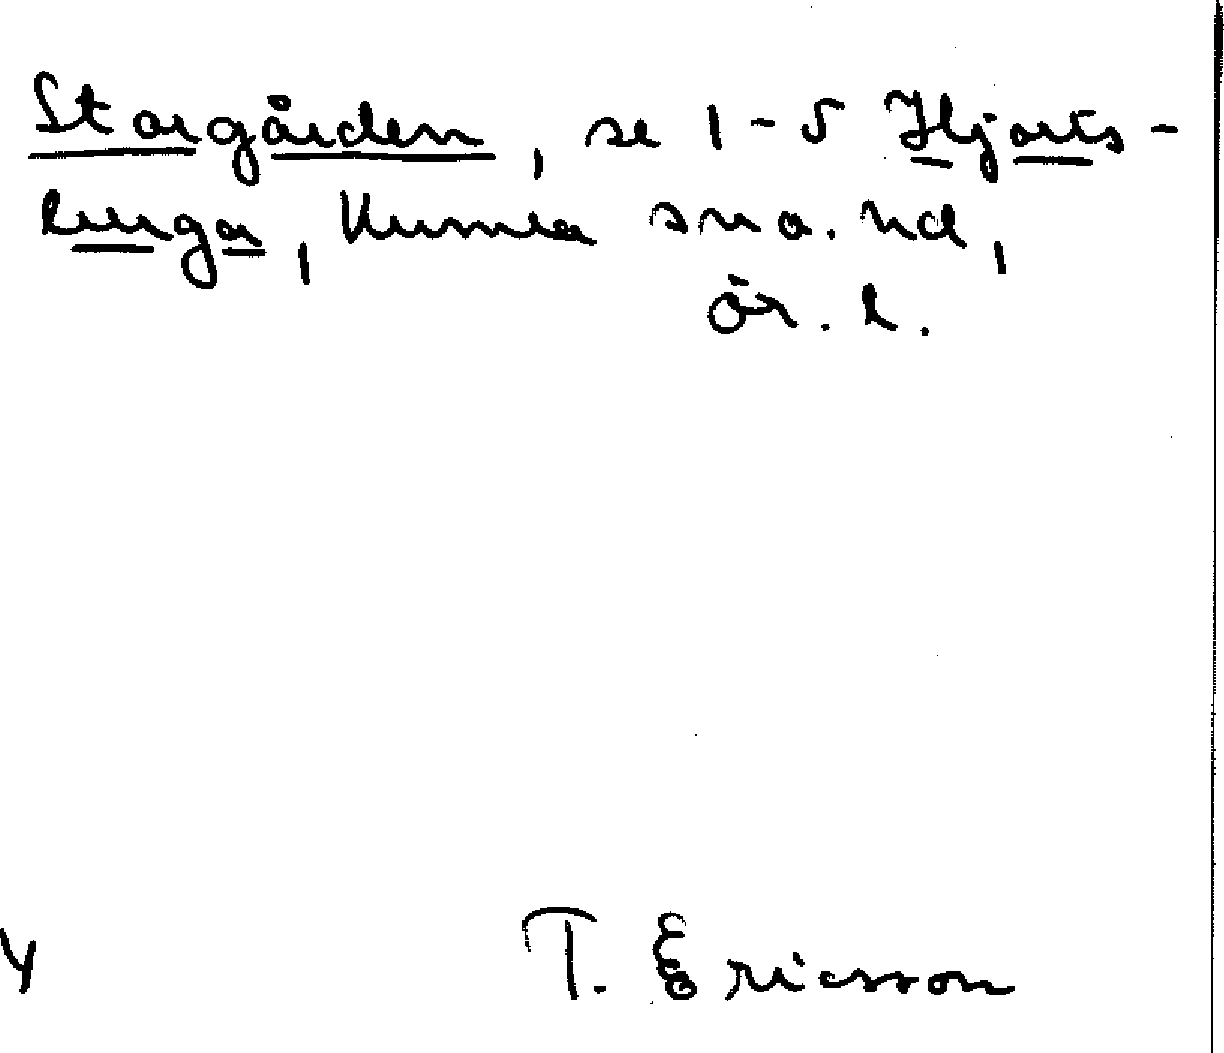 Storgården, se 1-5 Hjorts-
lunga, Kumla sna. hd,
ör. l.
T. Ericsson